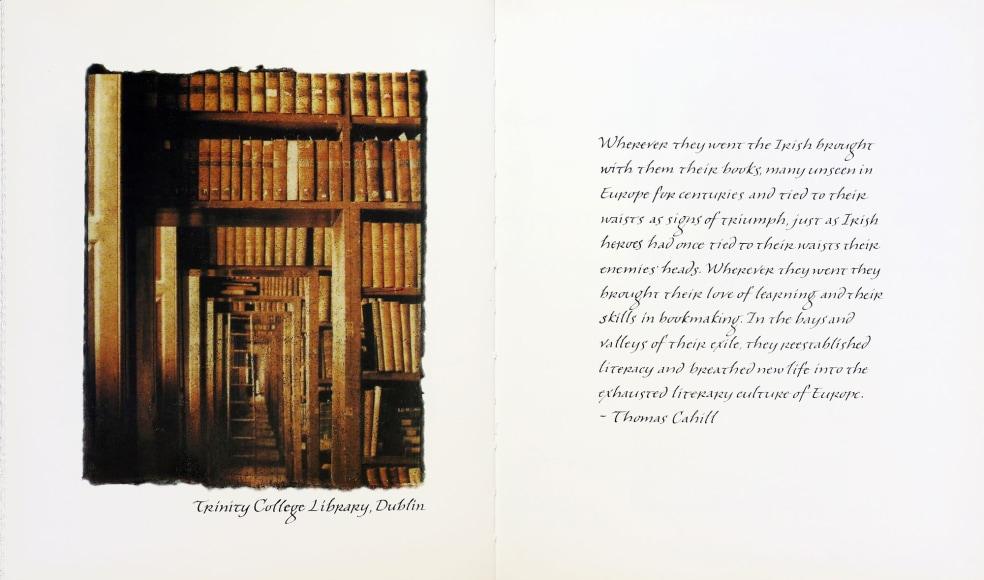 Trinity College Library, Dublin
Wherever they went the Irish brought
with them their books, many unseen in
Europe for centuries and tied to their
waists as signs of triumph, just as Irish
heroes had once tied to their waists their
enemies' heads. Wherever they went they
brought their love of learning and their
skills in bookmaking. In the bays and
valleys of their exile, they reestablished
literacy and breathed new life into the
exhausted literary culture of Europe.
- Thomas Cahill